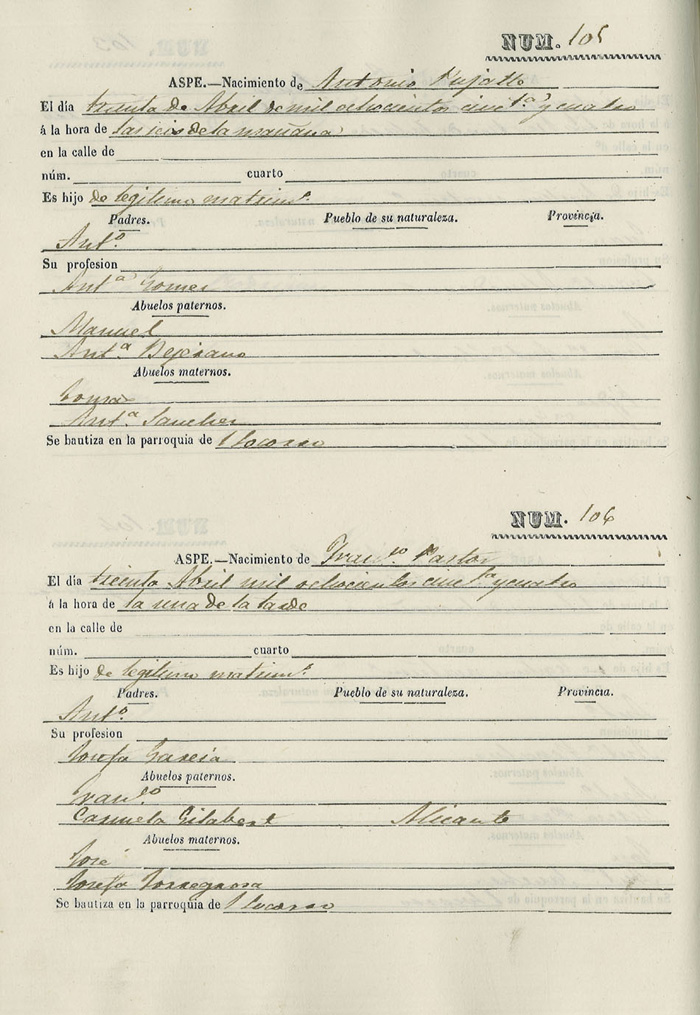 NUM. 105
ASPE.—Nacimiento de Antonio Pujalte
El día treinta de Abril de mil ochocientos cinc.ta y cuatro
á la hora de las seis de la mañana
en la calle de
núm. cuarto
Es hijo de legitimo matrim.o
Padres. Pueblo de su naturaleza. Provincia.
Ant.o
Su profesion
Ant.a Gomez
Abuelos paternos.
Manuel
Ant.a Bejerano
Abuelos maternos.
Ant.a Sanchez
Se bautiza en la parroquia de Socorro
NUM. 106
ASPE.—Nacimiento de Fran.co Pastor
El día treinta Abril mil ochocientos cinc.ta y cuatro
á la hora de la una de la tarde
en la calle de
núm. cuarto
Es hijo de legitimo matrim.o
Padres. Pueblo de su naturaleza. Provincia.
Ant.o
Su profesion
Josefa Garcia
Abuelos paternos.
Fran.co
Carmela Gilabert Alicante
Abuelos maternos.
José
Josefa Torregrosa
Se bautiza en la parroquia de Socorro